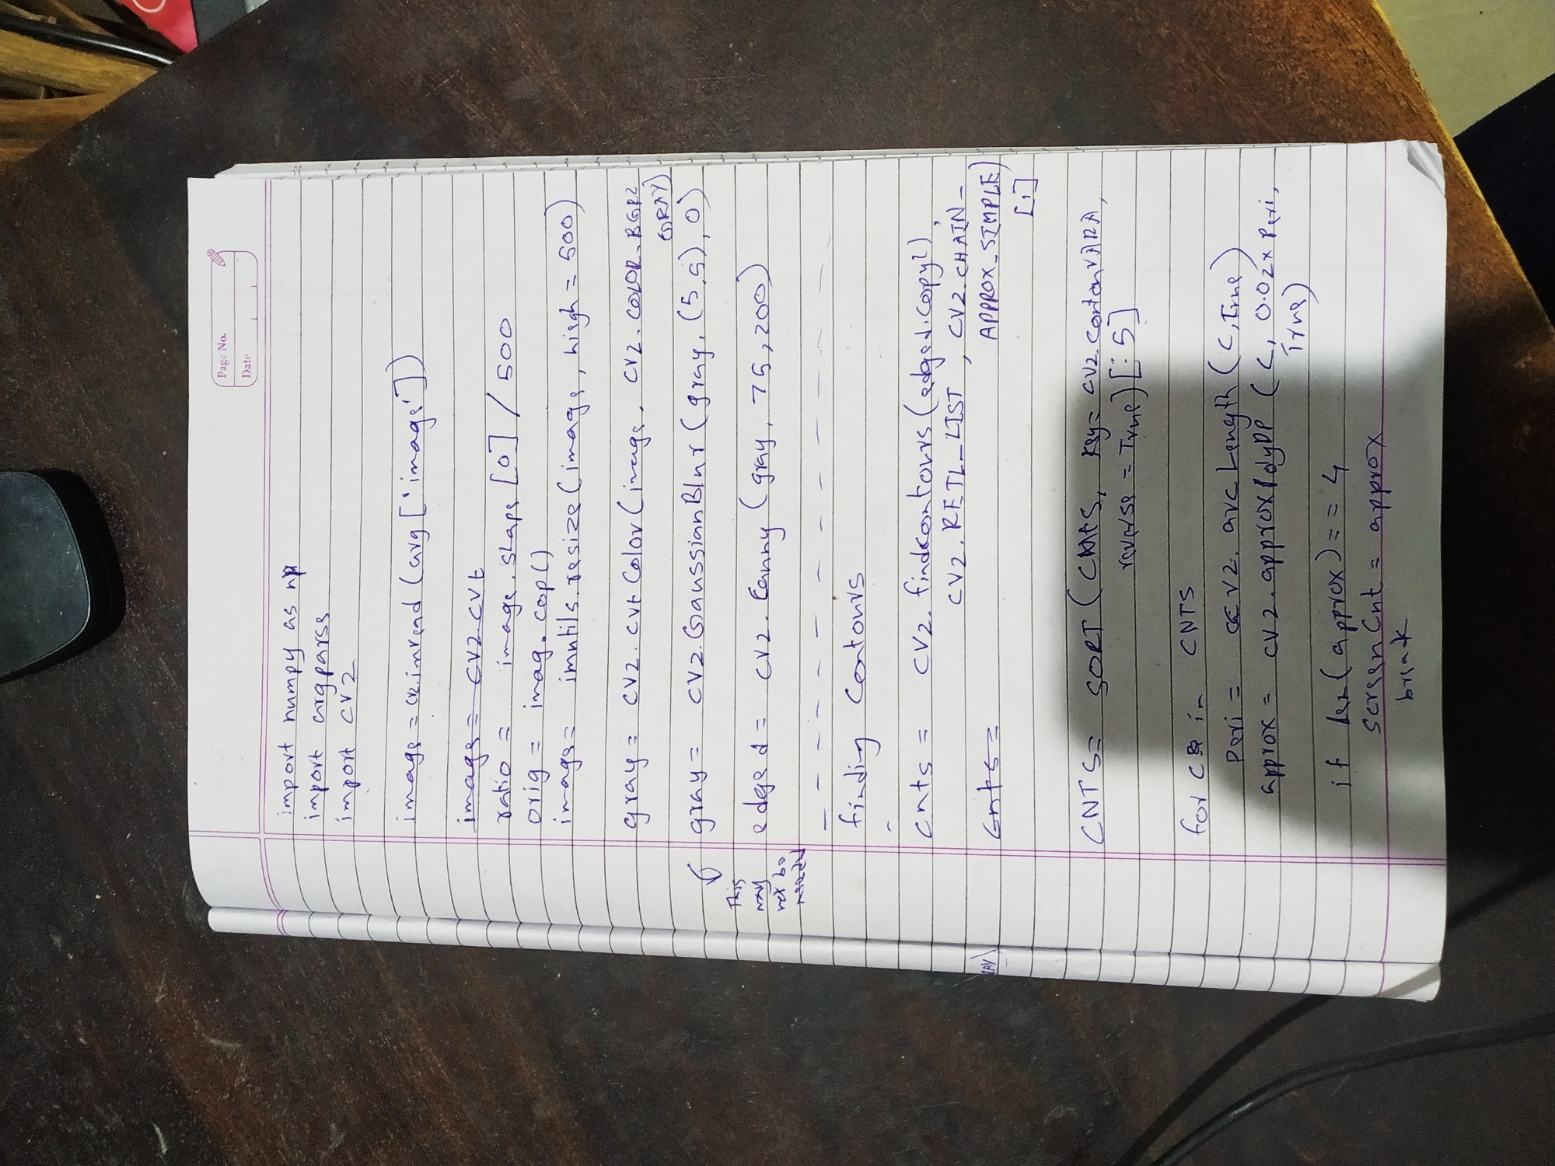 Page No.
Date
import numpy as np
import argparse
import cv2
image = cv2.imread (arg ['image'])
image = cv2.cvt
ratio = image.shape [0] / 500
orig = imag.cop()
image = imutils.resize (image, hiegh = 500)
gray = cv2.cvt Color (image, cv2.COLOR_BGR2
GRAY)
gray = cv2.GaussianBlur (gray, (5,5), 0)
This
may
not be
needed
edged = cv2.Canny (gray, 75, 200)
finding Contours
cnts = cv2.findcontours (edged.copy(),
cv2.RETL_LIST, cv2.CHAIN_
cnts =
APPROX_SIMPLE)
[1]
CNTS = SORT (CNTS, key = cv2.contourAREA,
reverse = True) [:5]
for c in CNTS
peri = cv2.arc Length (c, True)
approx = cv2.approxPolyDP (c, 0.02x Peri,
True)
if len (approx) == 4
screenCnt = approx
break